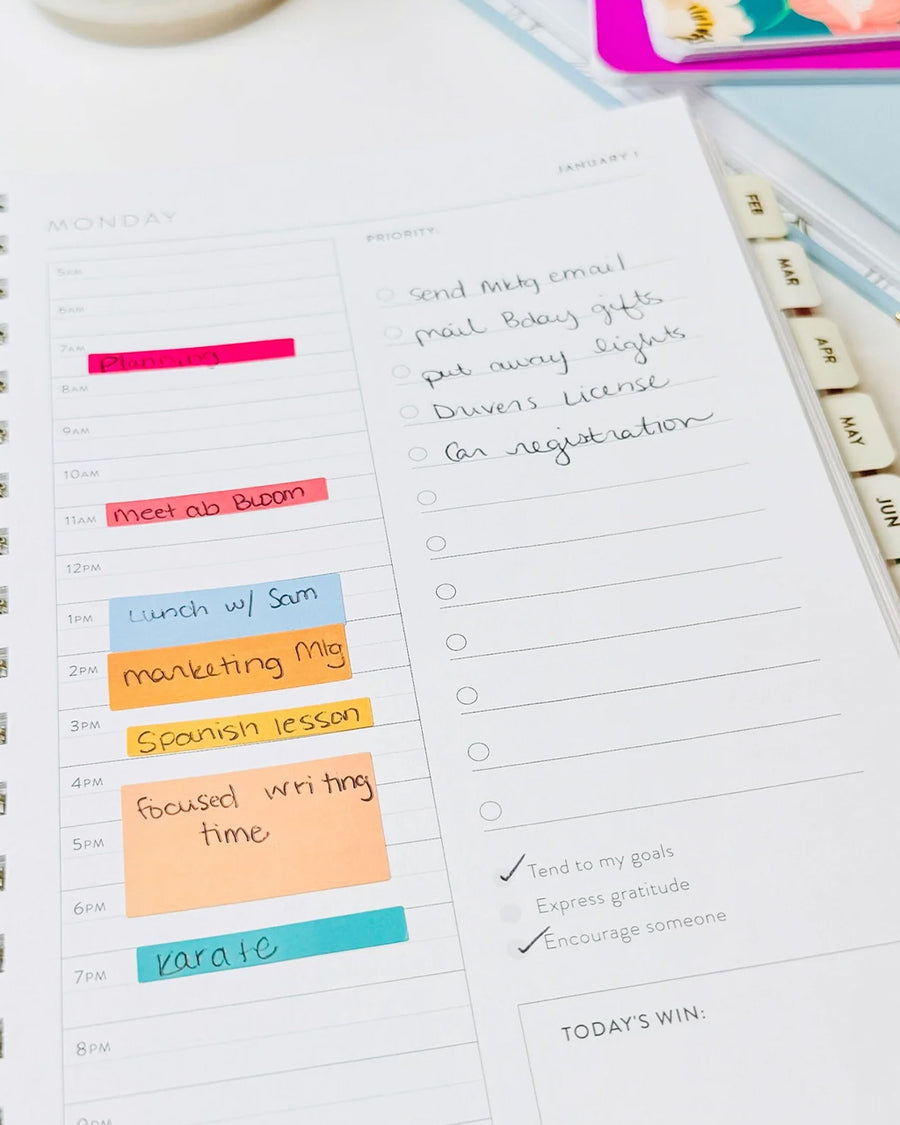 JANUARY 1
MONDAY
5AM
6AM
7AM
Planning
8AM
9AM
10AM
11AM
meet ab Bloom
12PM
1PM
Lunch w/ Sam
2PM
marketing Mtg
3PM
Spanish lesson
4PM
focused writing
time
5PM
6PM
7PM
karate
8PM
9PM
PRIORITY:
send Mktg email
mail Bday gifts
put away lights
Drivers License
Car registration
Tend to my goals
Express gratitude
Encourage someone
TODAY'S WIN:
FEB
MAR
APR
MAY
JUN